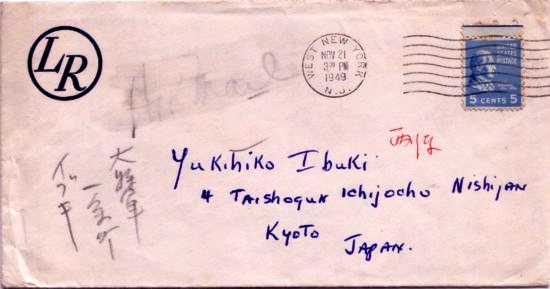 LR
Air Mail
WEST NEW YORK
NOV 21
3 30 PM
1949
N.J.
UNITED STATES POSTAGE
5 CENTS 5
Yukihiko Ibuki
4 Taishogun Ichijocho Nishijan
Kyoto
Japan.
大将軍
一条町
イブキ